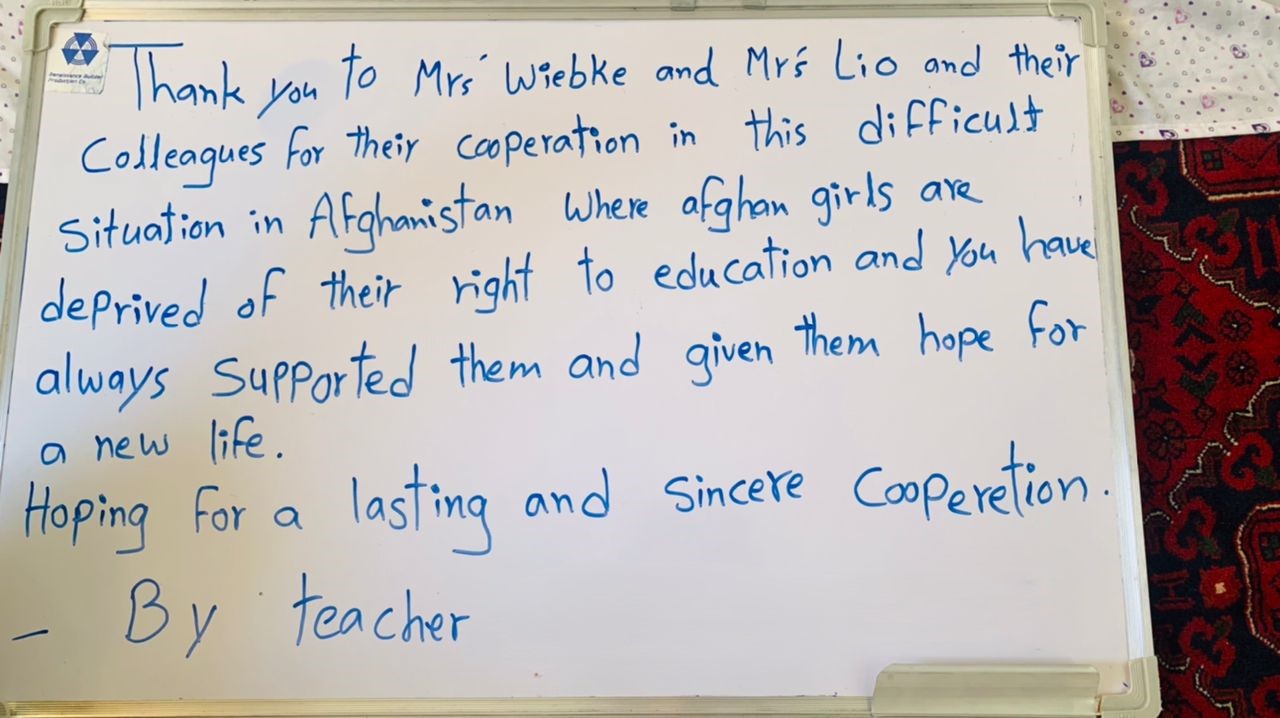 Renaissance Builder
Production Co.
Thank you to Mrs' Wiebke and Mr's Lio and their
Colleagues for their cooperation in this difficult
situation in Afghanistan where afghan girls are
deprived of their right to education and you have
always supported them and given them hope for
a new life.
Hoping for a lasting and sincere cooperetion.
- By teacher